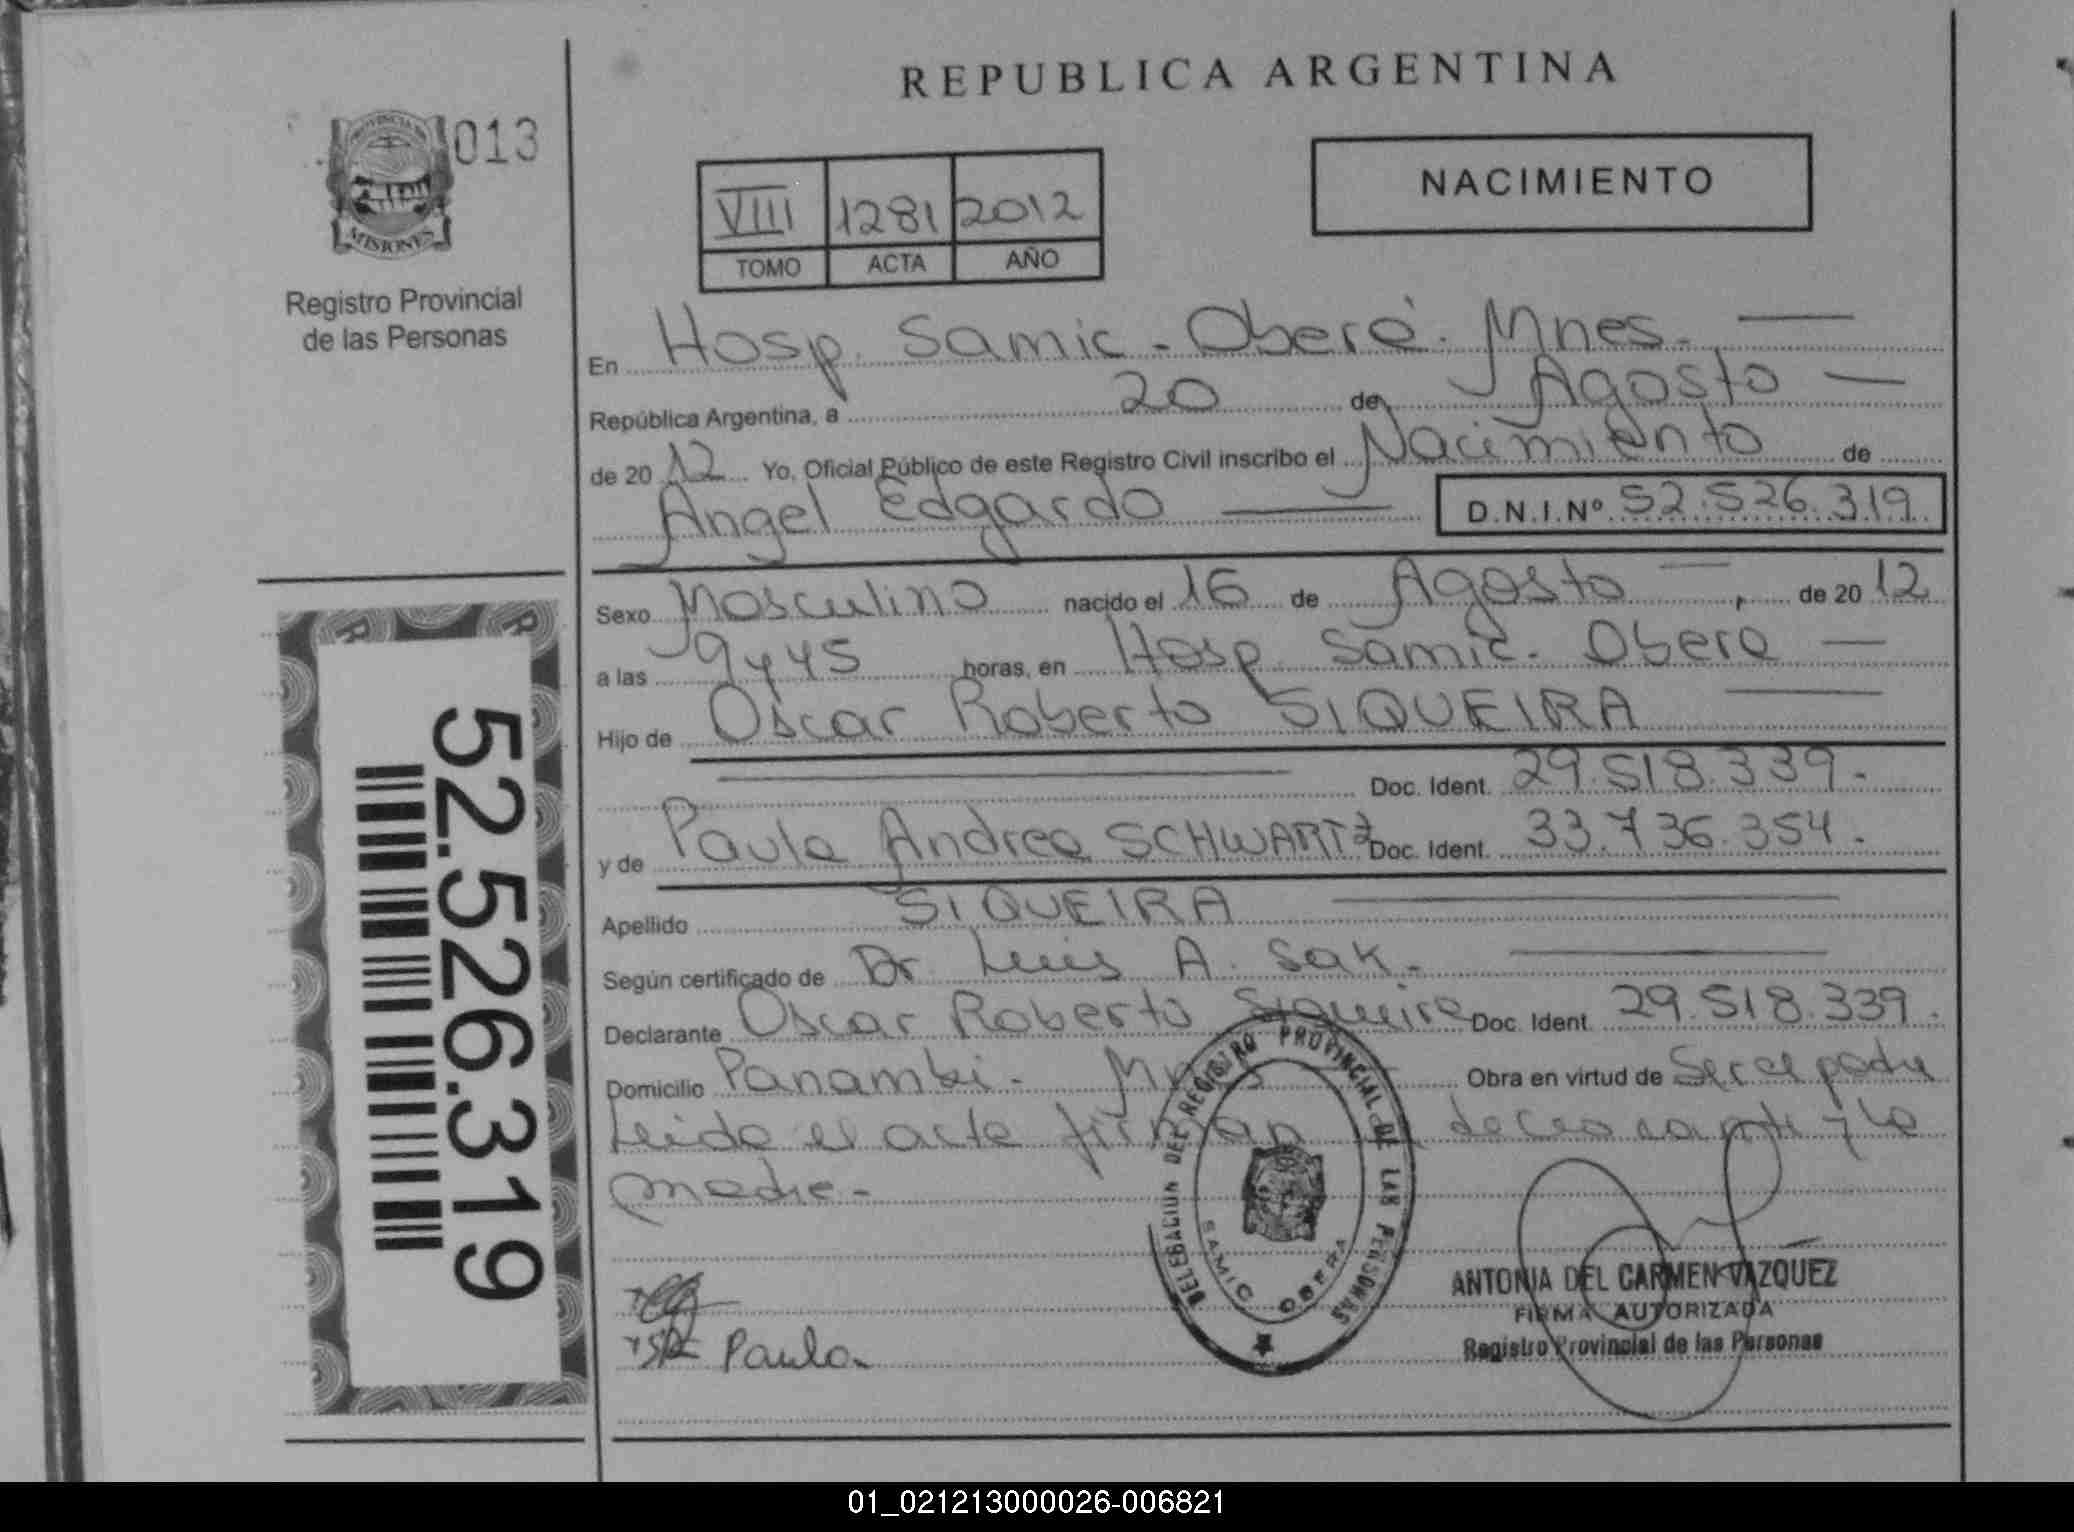 REPUBLICA ARGENTINA
PROVINCIA DE
MISIONES
013
Registro Provincial
de las Personas
VIII 1281 2012
TOMO ACTA AÑO
NACIMIENTO
En Hosp. Samic - Oberá. Mnes.
República Argentina, a 20 de Agosto
de 2012 Yo, Oficial Público de este Registro Civil inscribo el Nacimiento de
Angel Edgardo D.N.I.Nº 52.526.319
Sexo Masculino nacido el 16 de Agosto de 2012
a las 9y45 horas, en Hosp. Samic. Obera
Hijo de Oscar Roberto SIQUEIRA
Doc. Ident. 29.518.339.
y de Paula Andrea SCHWARTZ Doc. Ident. 33.736.354.
Apellido SIQUEIRA
Según certificado de Dr. Luis A. Sak.
Declarante Oscar Roberto Siqueira Doc. Ident. 29.518.339.
Domicilio Panambi. Mnes Obra en virtud de Ser el padre
Leida el acta firman el declarante y la
madre.
52.526.319
DELEGACION DEL REGISTRO PROVINCIAL DE LAS PERSONAS
SAMIC OBERA
Paula
ANTONIA DEL CARMEN VAZQUEZ
FIRMA AUTORIZADA
Registro Provincial de las Personas
01_021213000026-006821